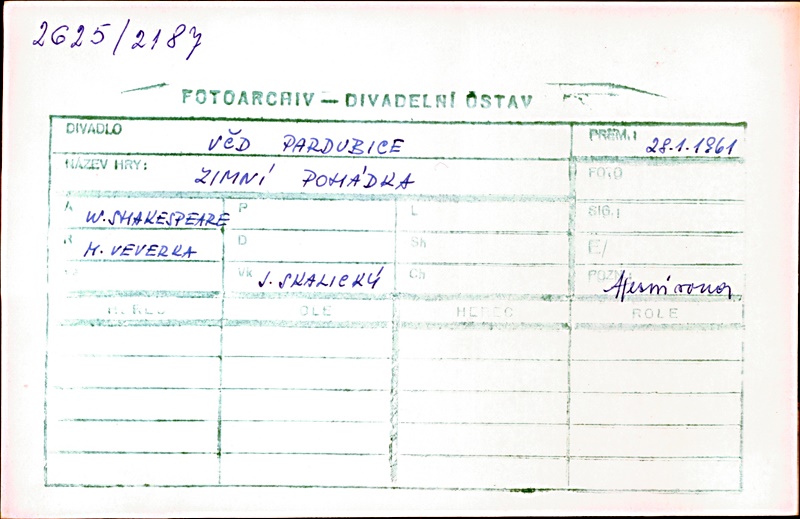 2625/2187
FOTOARCHIV — DIVADELNÍ ÚSTAV
DIVADLO VČD PARDUBICE PREM.: 28.1.1961
NÁZEV HRY: ZIMNÍ POHÁDKA FOTO
A W. SHAKESPEARE P L SIG.:
R M. VEVERKA D Sh E/
Vk J. SKALICKÝ Ch POZN.
HEREC ROLE HEREC ROLE